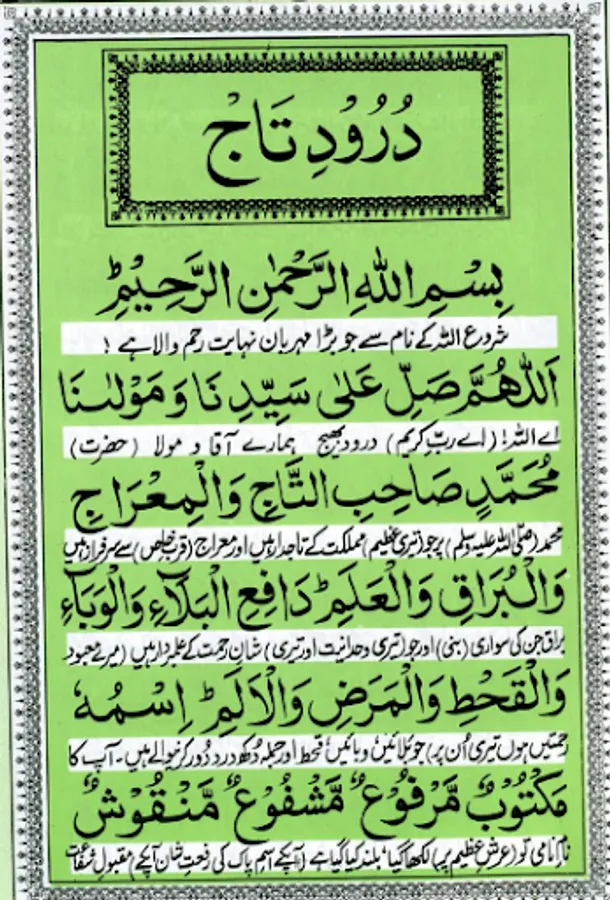 دُرُودِ تَاج
بِسْمِ اللهِ الرَّحْمٰنِ الرَّحِيْمِ ط
شروع اللہ کے نام سے جو بڑا مہربان نہایت رحم والا ہے !
اَللّٰهُمَّ صَلِّ عَلٰى سَيِّدِنَا وَ مَوْلٰنَا
اے اللہ! (اے ربِّ کریم) درود بھیج ہمارے آقا و مولا (حضرت)
مُحَمَّدٍ صَاحِبِ التَّاجِ وَالْمِعْرَاجِ
محمد (صلی اللہ علیہ وسلم) پر جو (تیری عظیم) مملکت کے تاجدار ہیں اور معراج (قربِ خاص) سے سرفراز ہیں
وَالْبُرَاقِ وَالْعَلَمِ ط دَافِعِ الْبَلَآءِ وَالْوَبَآءِ
براق جن کی سواری (بنی) اور جو (تیری وحدانیت اور تیری) شانِ رحمت کے علمبردار ہیں (میرے معبود
وَالْقَحْطِ وَالْمَرَضِ وَالْاَلَمِ ط اِسْمُهٗ
رحمتیں ہوں تیری اُن پر) جو بلائیں وبائیں قحط اور جملہ دُکھ درد دُور کرنیوالے ہیں۔ آپ کا
مَكْتُوْبٌ مَّرْفُوْعٌ مَّشْفُوْعٌ مَّنْقُوْشٌ
نامِ نامی تو (عرشِ عظیم پر) لکھا گیا، بلند کیا گیا ہے (آپکے اسمِ پاک کی رفعتِ شان آپکے) مقبولِ شفاعت